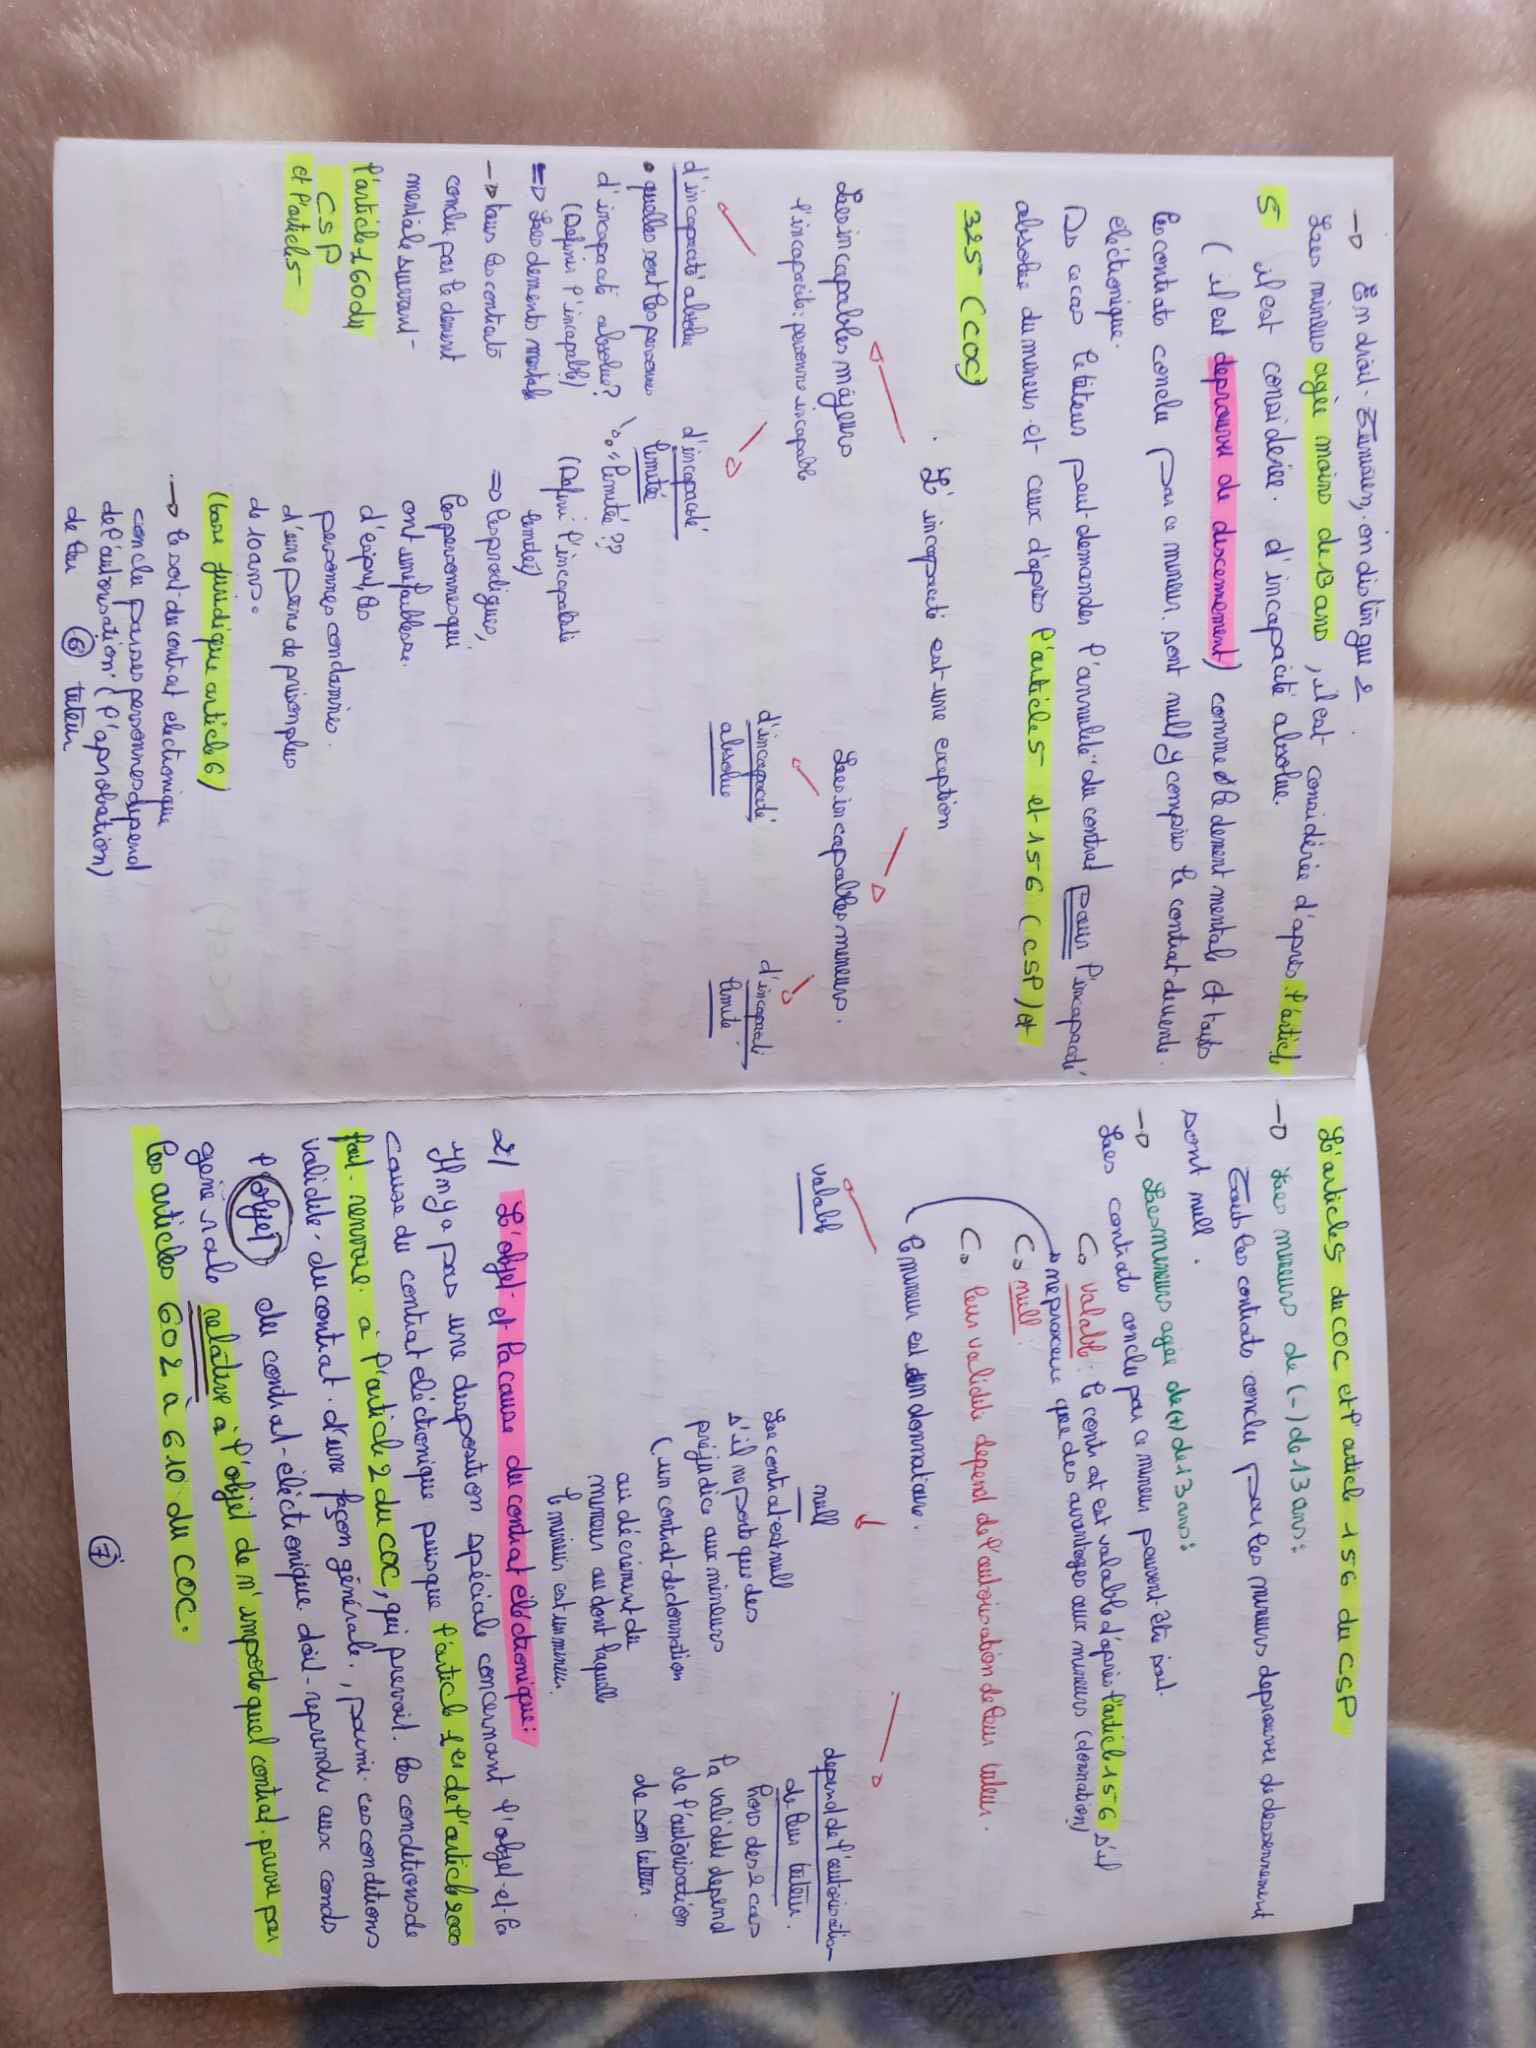 → En droit Tunisien, on distingue 2
Les mineus agée moins de 13 ans, il est considérée d'après l'article
5 il est considérée. d'incapacité absolue.
( il est deprouvu de discernement) comme le dement mentale et touts
les contrats conclu par ce mineur. sont null y compris le contrat de vente
eléctionique.
Ds ce cas le tuteus peut demandes l'annulité du contrat pour l'incapacité
absolue du mineur et ceux d'après l'article 5 et 156 (CSP) et
325 (COC)
L'incapacité est une exeption
Les incapables majeurs
l'incapacite: personne incapable
d'incapacité absolue
• quelles sont les personnes
d'incapacité absolue?
(Definir l'incapable)
=> Les dements mentale
→ tous les contrats
conclu par le dement
mentale suivant
l'article 160 du
CSP
et l'article 5
d'incapacité
limitée
" limitée ??
(Defini l'incapabilité
limitée)
=> les prodigues,
les personnes qui
ont une faiblesse.
d'esprit, les
personnes condamnés.
d'une peine de prison plus
de 10 ans.
(base juridique article 6)
→ le sort du contrat electionique
conclu par ses personnes depend
de l'autorisation (l'aprobation)
de leur tuteur
Les incapables mineurs.
d'incapacité
absolue
d'incapacité
limité
6
L'article 5 du COC et l'article 156 du CSP
→ Les mineurs de (-) de 13 ans:
Touts les contrats conclu par les mineurs deprouvu de dessernement
sont null.
→ Les mineurs agée de (+) de 13 ans:
Les contrats conclu par ce mineur peuvent être soit
valabl: le contrat est valable d'après l'article 156 s'il
ne procure que des avantages aux mineurs (donnation)
null:
leur validite depend de l'autorisation de leur tuteur.
le mineur est un donnataire.
valabl
null
Le contrat est null
s'il ne porte que des
préjudice aux mineurs
( un contrat de donnation
au décrément du
mineur au dont laquell
le mineur est un mineur.
depend de l'autorisation
de leur tuteur.
hors des 2 cas
la validité depend
de l'autorisation
de son tuteur
2/ L'objet et la cause du contrat eléctronique:
Il n y a pas une disposition spéciale concernant l'objet et la
cause du contrat eléctionique puisque l'article 1er de l'article 2000
fait renvoie à l'article 2 du COC, qui prevoit. les conditions de
validite du contrat d'une façon générale., parmi ces conditions
l'objet du contrat eléctionique doit reprendre aux conds
générale relative à l'objet de n'importe quel contrat prevu par
les articles 602 à 610 du COC.
7